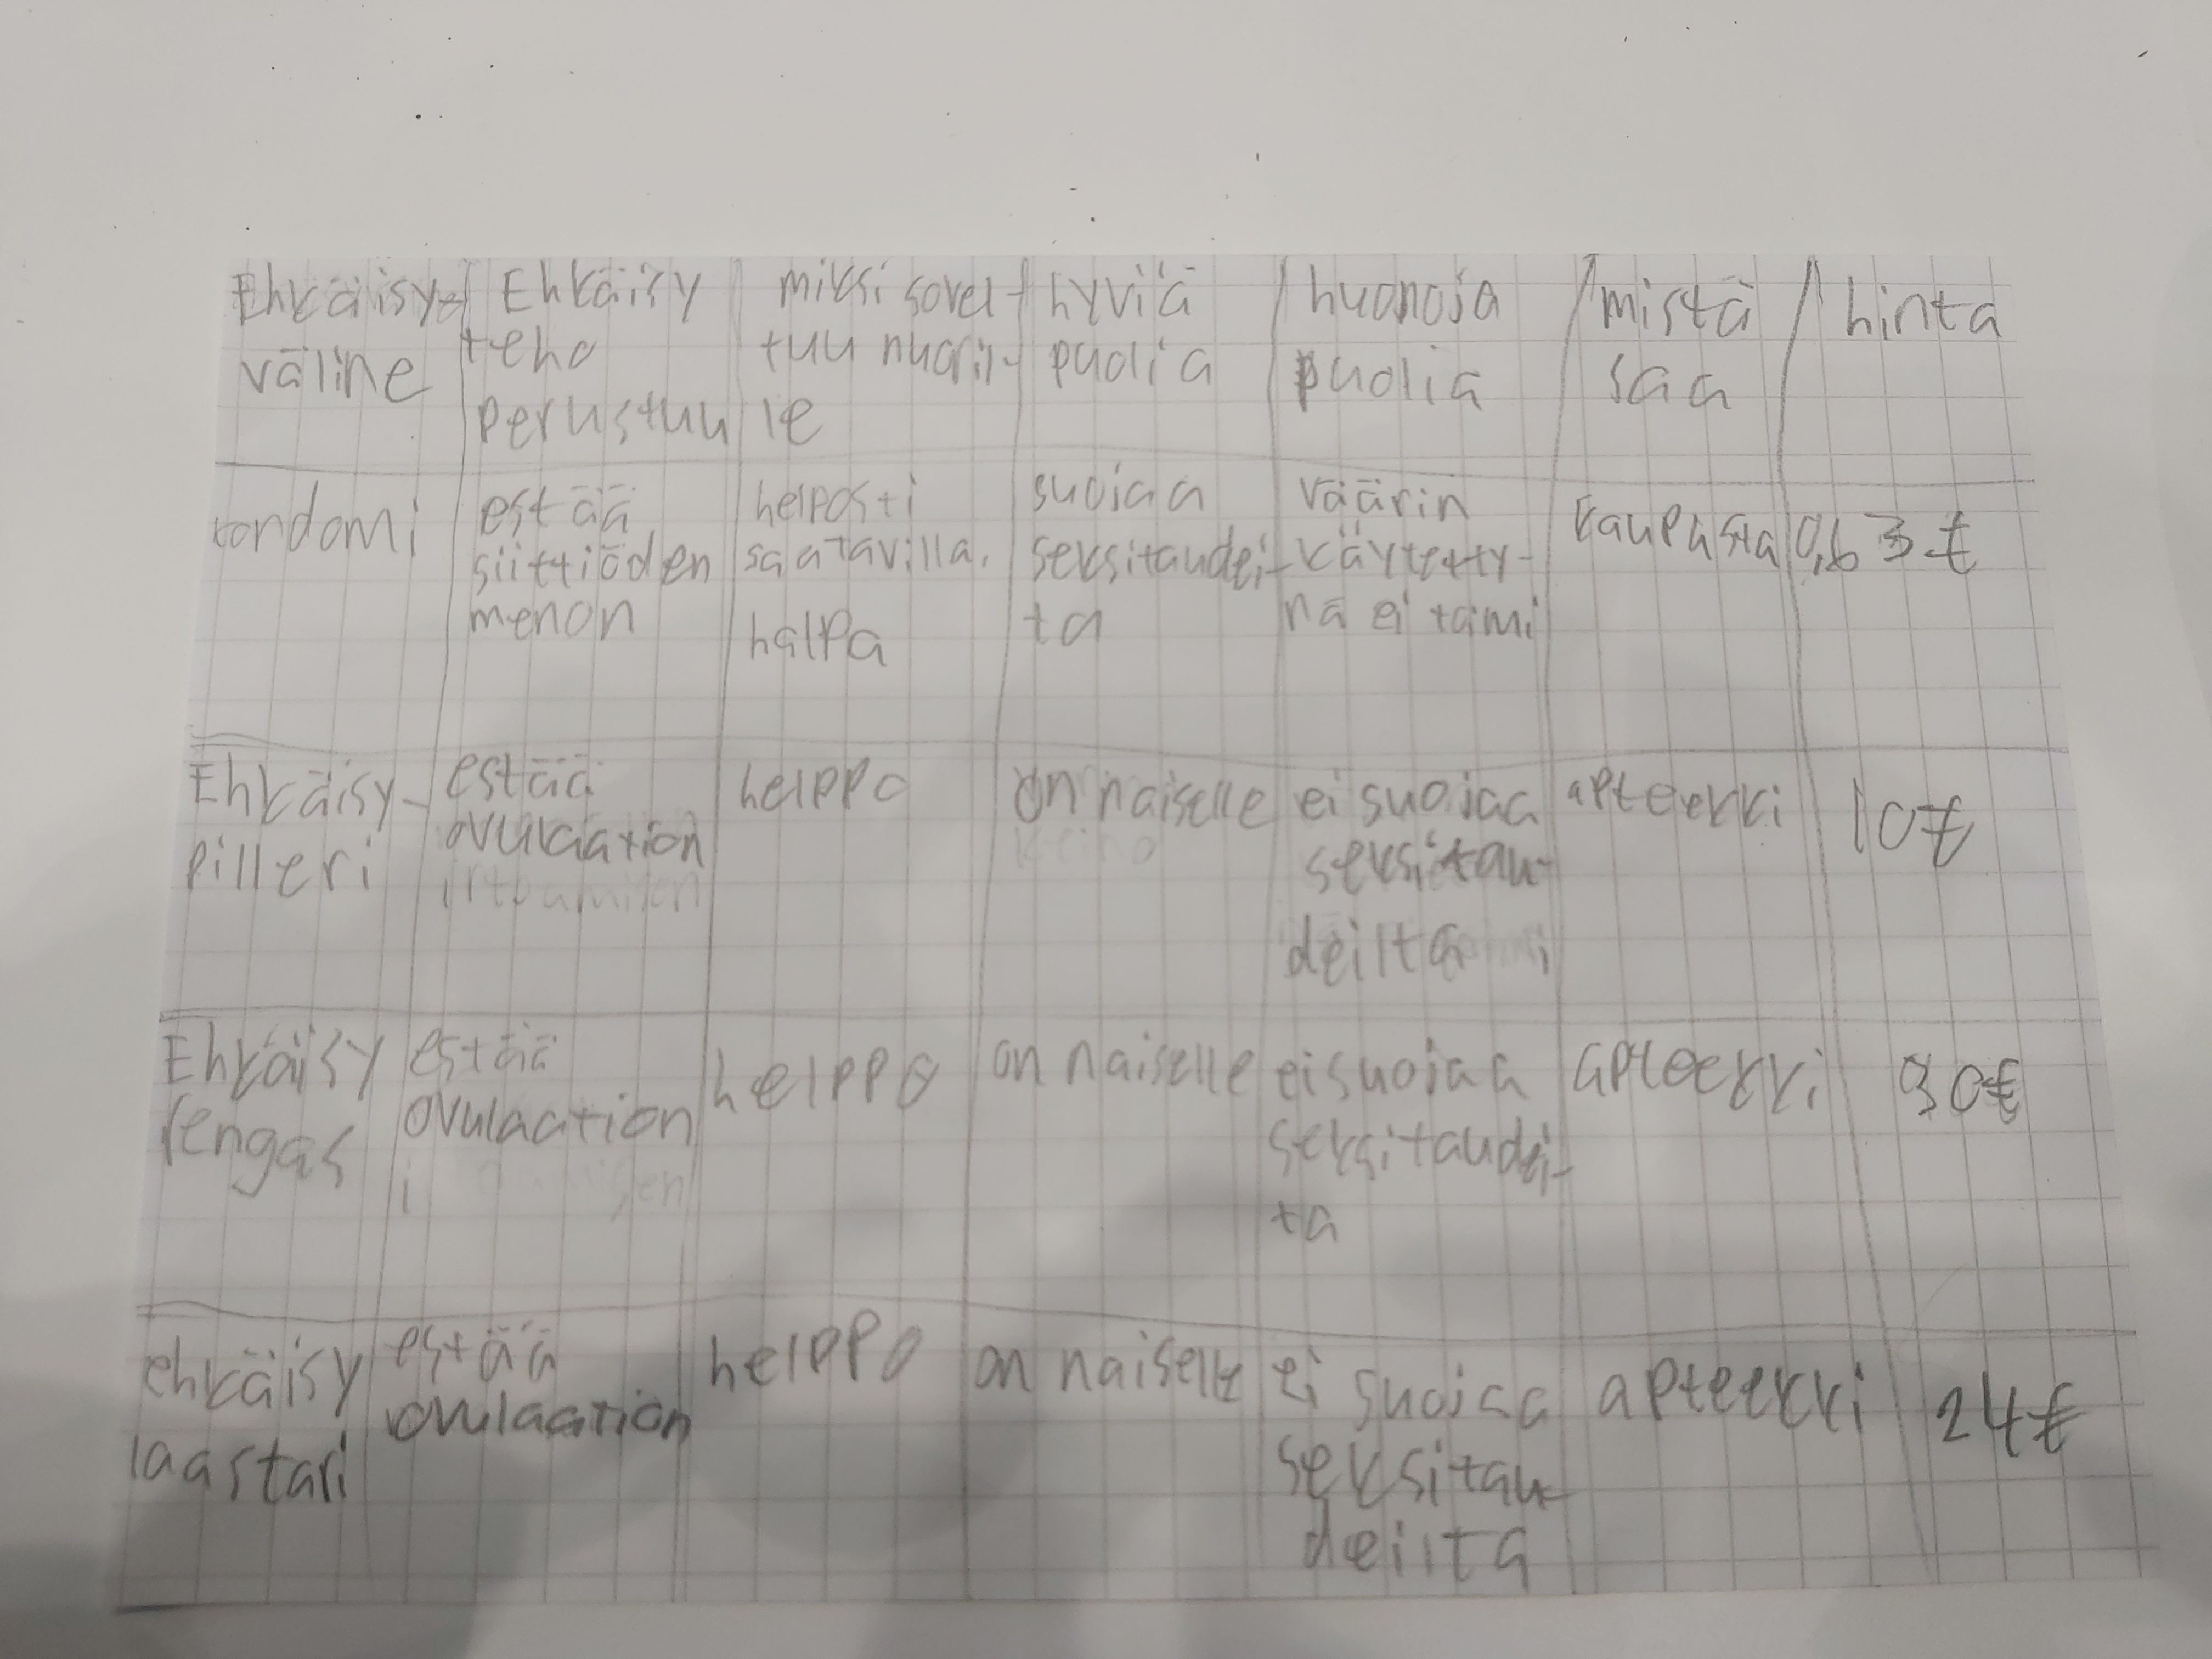 Ehkäisy-
väline
Ehkäisy
teho
perustuu
miksi sovel-
tuu nuoril-
le
hyviä
puolia
huonoja
puolia
mistä
saa
hinta
kondomi
estää
siittiöden
menon
helposti
saatavilla.
halpa
suojaa
seksitaudei-
ta
väärin
käytetty-
nä ei toimi
kaupasta
0,63 €
Ehkäisy-
pilleri
estää
ovulaation
helppo
on naiselle
ei suojaa
seksitau-
deilta
apteekki
10€
Ehkäisy
rengas
estää
ovulaation
helppo
on naiselle
ei suojaa
seksitaudei-
ta
apteekki
30€
ehkäisy
laastari
estää
ovulaation
helppo
on naiselle
ei suojaa
seksitau-
deilta
apteekki
24€